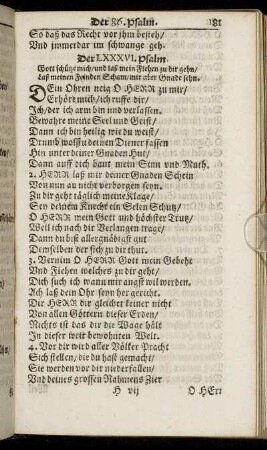 Der 86. Psalm. 181
So daß das Recht vor ihm besteh/
Und immerdar im schwange geh.
Der LXXXVI. Psalm.
Gott schütze mich/und laß mein Flehen zu dir gehn/
Laß meinen Feinden Scham/mir aber Gnade sehn.
DEin Ohren neig O HERR zu mir/
Erhöre mich/ich ruffe dir/
Ich/der ich arm bin und verlassen.
Bewahre meine Seel und Geist/
Dann ich bin heilig wie du weist/
Drumb wollstu deinen Diener fassen
Hin unter deiner Gnaden Hut/
Dann auff dich baut mein Sinn und Muth.
2. HERR laß mir deiner Gnaden Schein
Von nun an nicht verborgen seyn.
Zu dir geht täglich meine Klage/
Sey deinem Knecht ein Selen Schutz/
O HERR mein Gott und höchster Trutz/
Weil ich nach dir Verlangen trage/
Dann du bist allergnädigst gut
Demselben der sich zu dir thut.
3. Vernim O HERR Gott mein Gebeht
Und Flehen welches zu dir geht/
Dich such ich wann mir angst wil werden.
Ach laß dein Ohr seyn her gericht.
Die HERR dir gleichet keiner nicht
Von allen Göttern dieser Erden/
Nichts ist das dir die Wage hält
In dieser weit bewohnten Welt.
4. Vor dir wird aller Völker Pracht
Sich stellen/die du hast gemacht/
Sie werden vor dir niederfallen/
Und deines grossen Nahmens Zier
H vij O HErr